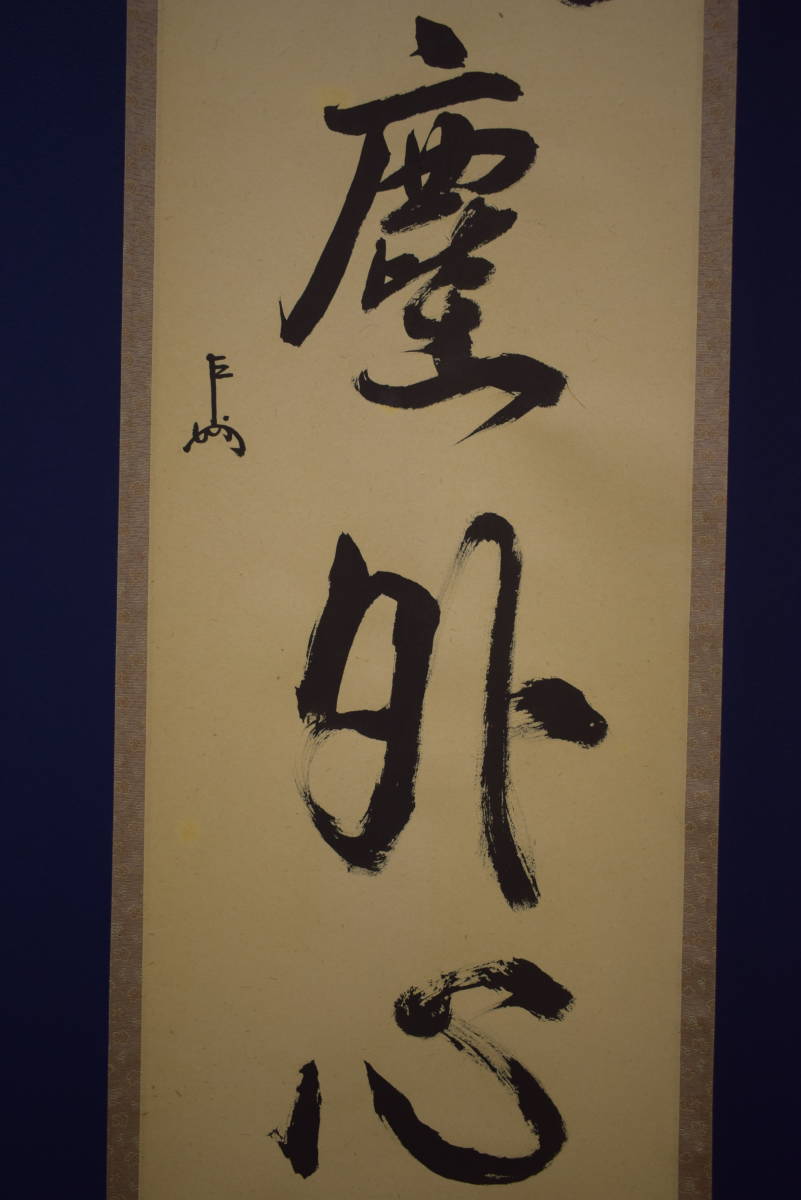 塵外心